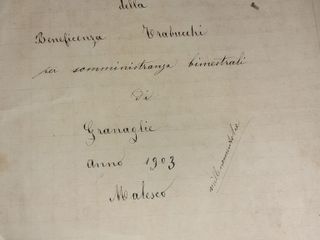 della
Beneficenza Trabucchi
per somministranza bimestrali
di
Granaglie
Anno 1903
Malesco